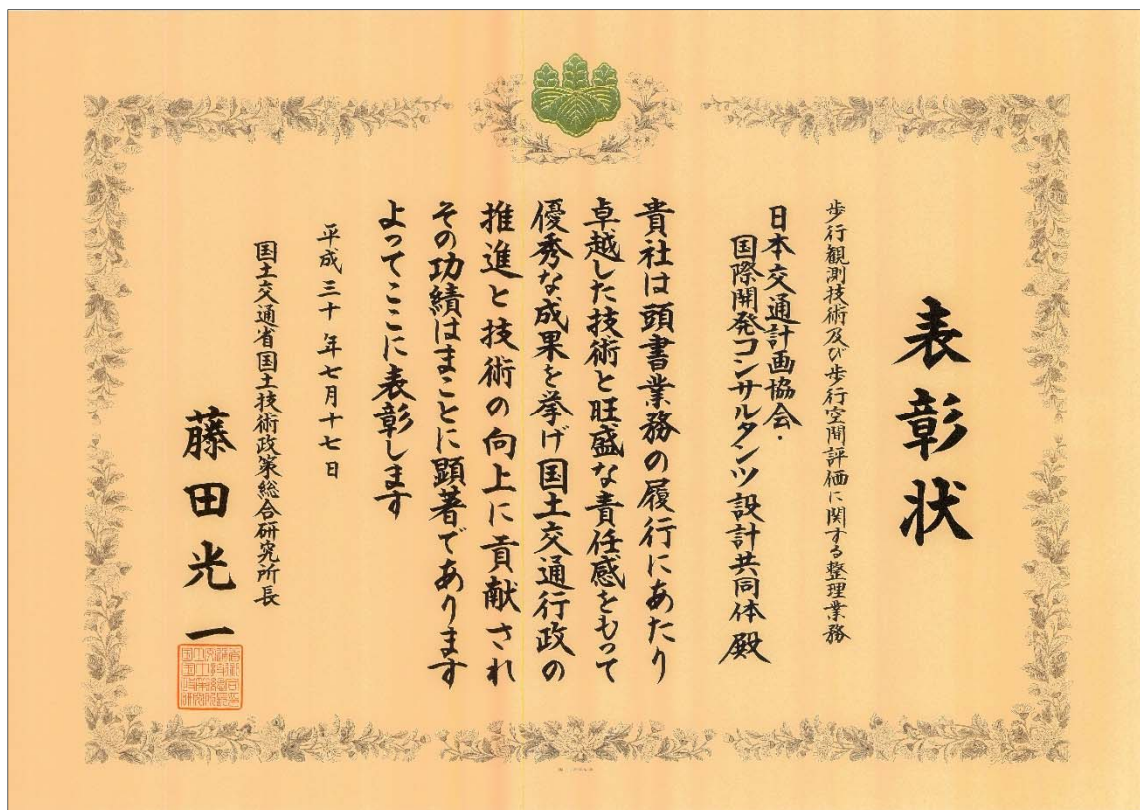 表彰状
歩行観測技術及び歩行空間評価に関する整理業務
日本交通計画協会・
国際開発コンサルタンツ設計共同体 殿
貴社は頭書業務の履行にあたり
卓越した技術と旺盛な責任感をもって
優秀な成果を挙げ国土交通行政の
推進と技術の向上に貢献され
その功績はまことに顕著であります
よってここに表彰します
平成三十年七月十七日
国土交通省国土技術政策総合研究所長
藤田光一